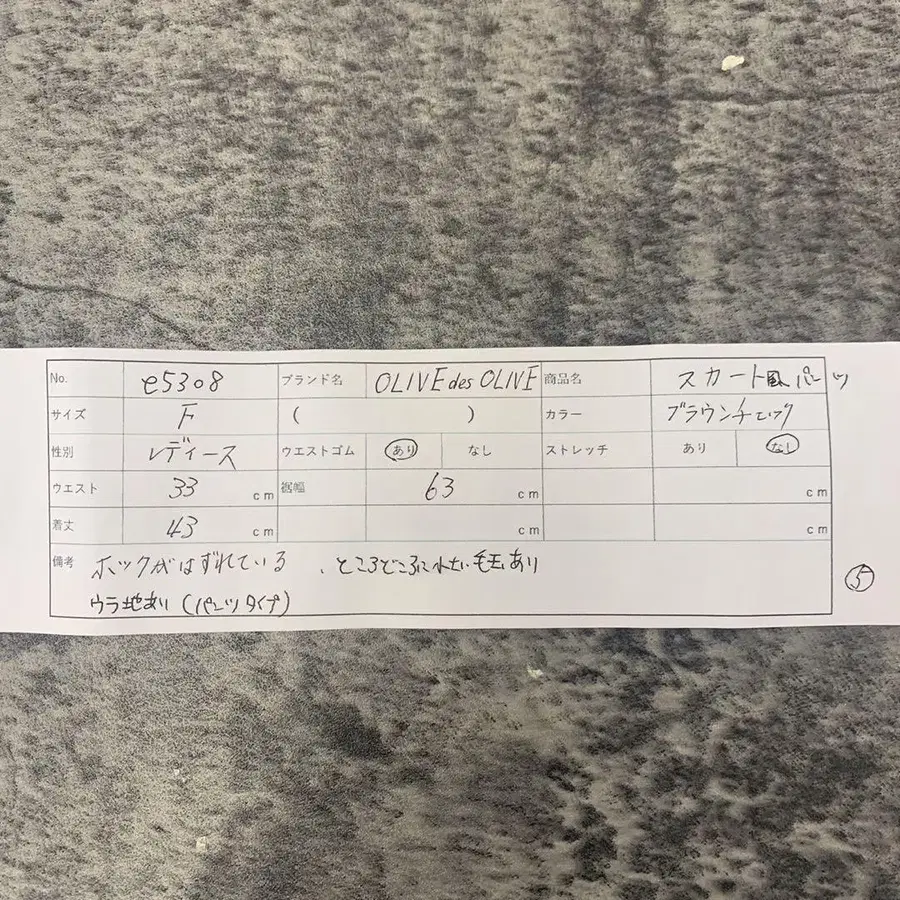 No. e5308 ブランド名 OLIVE des OLIVE 商品名 スカート風パンツ
サイズ F ( ) カラー ブラウンチェック
性別 レディース ウエストゴム あり なし ストレッチ あり なし
ウエスト 33 cm 裾幅 63 cm cm
着丈 43 cm cm cm
備考 ホックがはずれている 、ところどころに 毛玉あり
ウラ地あり(パンツタイプ)
5